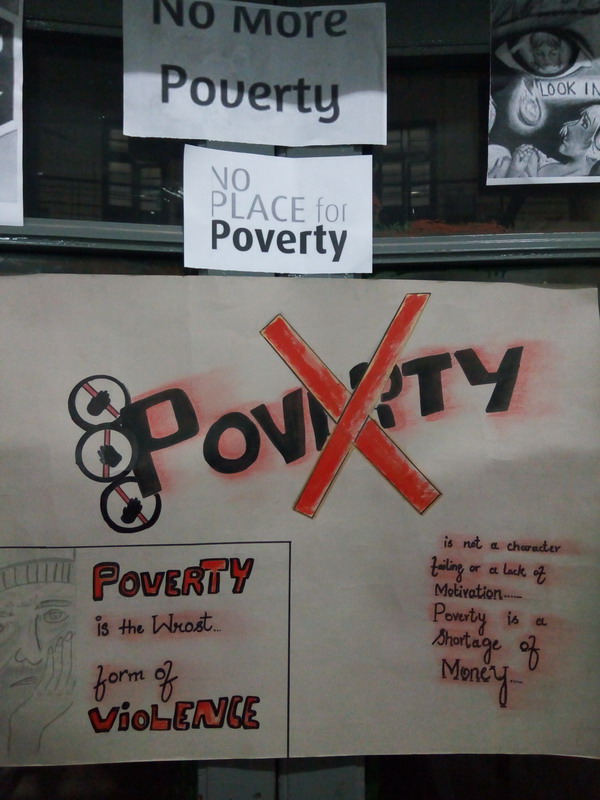 No More
Poverty
LOOK IN
NO
PLACE for
Poverty
POVERTY
POVERTY
is the Wrost...
form of
VIOLENCE
is not a character
failing or a lack of
Motivation......
Poverty is a
Shortage of
Money....